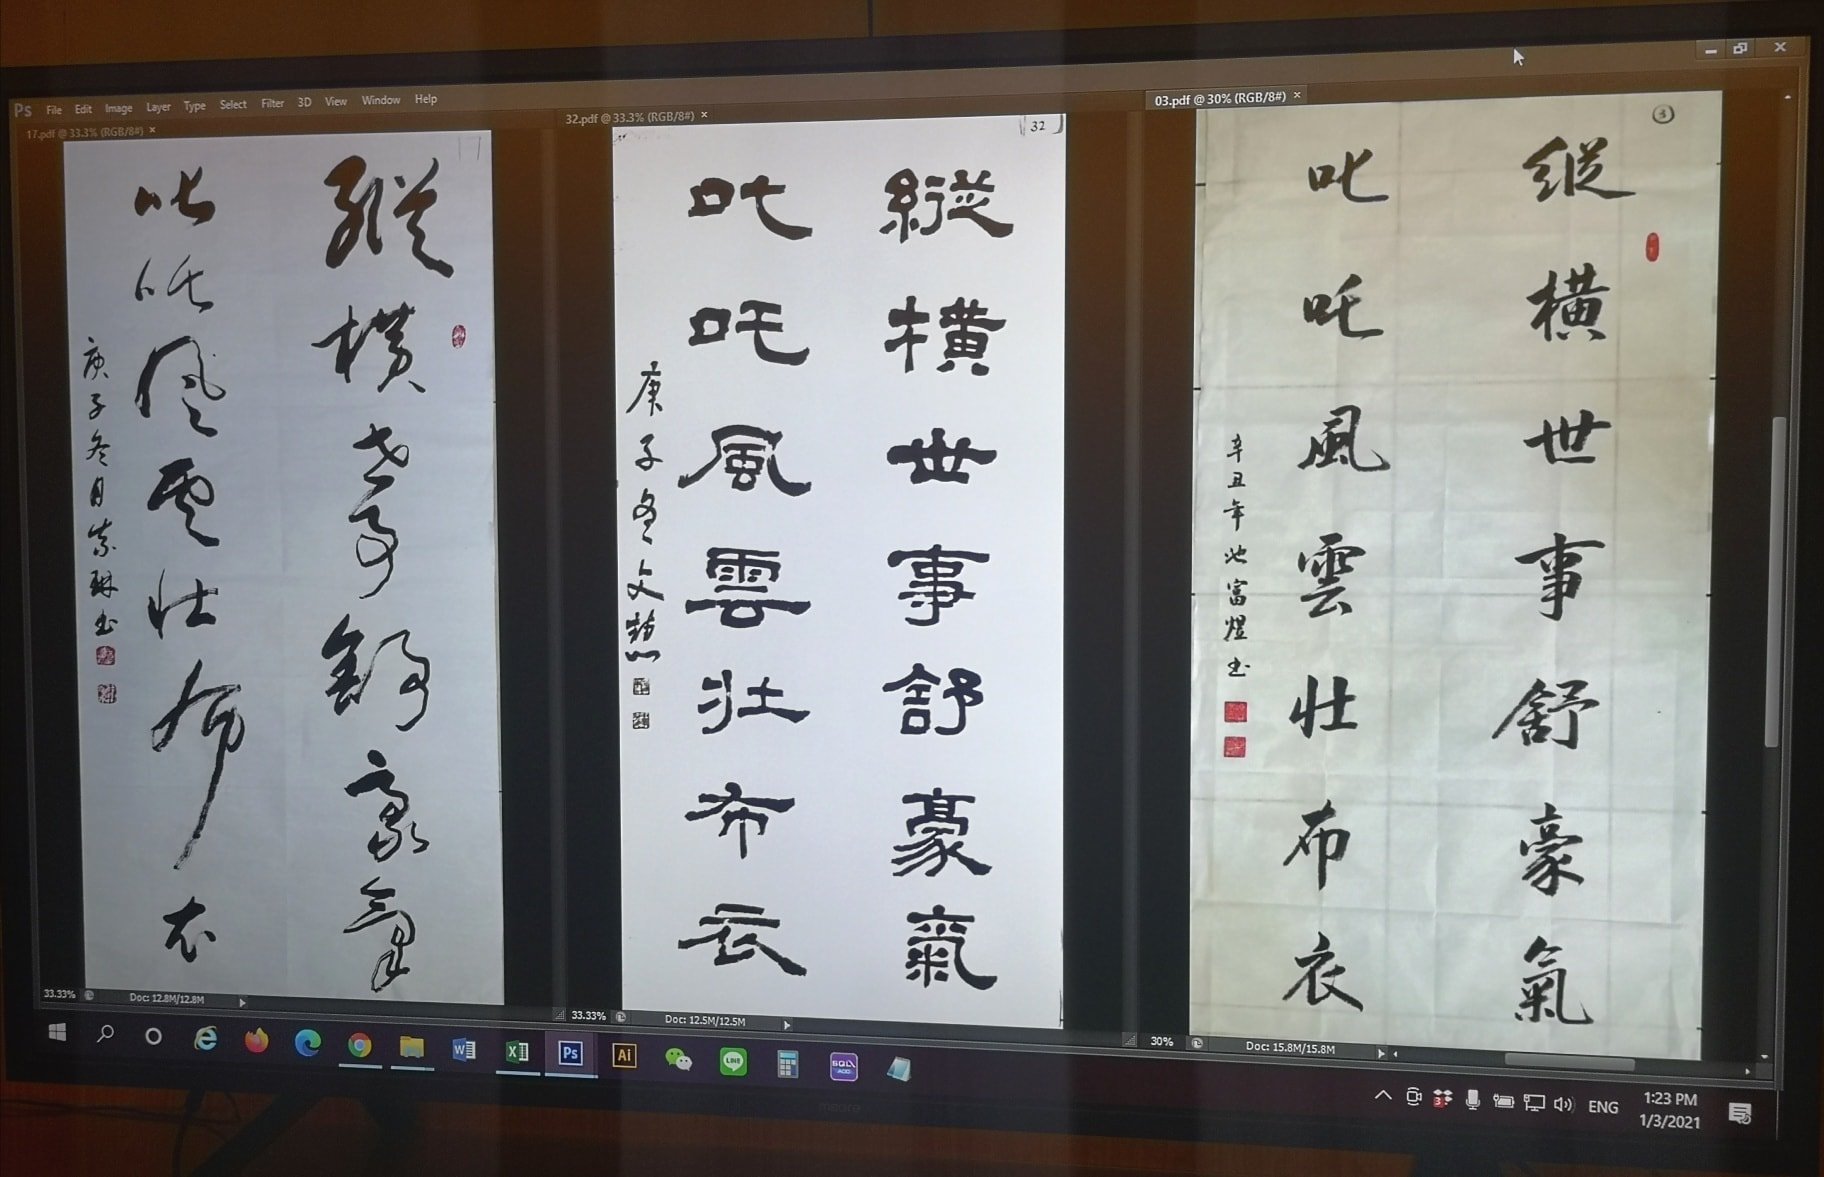 Ps File Edit Image Layer Type Select Filter 3D View Window Help
17.pdf @ 33.3% (RGB/8#) ×
縱橫世事舒豪氣
叱咤風雲壯布衣
庚子冬月
33.33%
Doc: 12.8M/12.8M
32.pdf @ 33.3% (RGB/8#) ×
32
縱橫世事舒豪氣
叱吒風雲壯布衣
庚子冬文
33.33%
Doc: 12.5M/12.5M
03.pdf @ 30% (RGB/8#) ×
3
縱橫世事舒豪氣
叱吒風雲壯布衣
辛丑年池富煜书
30%
Doc: 15.8M/15.8M
Ps Ai LINE SQL
3
ENG
1:23 PM
1/3/2021